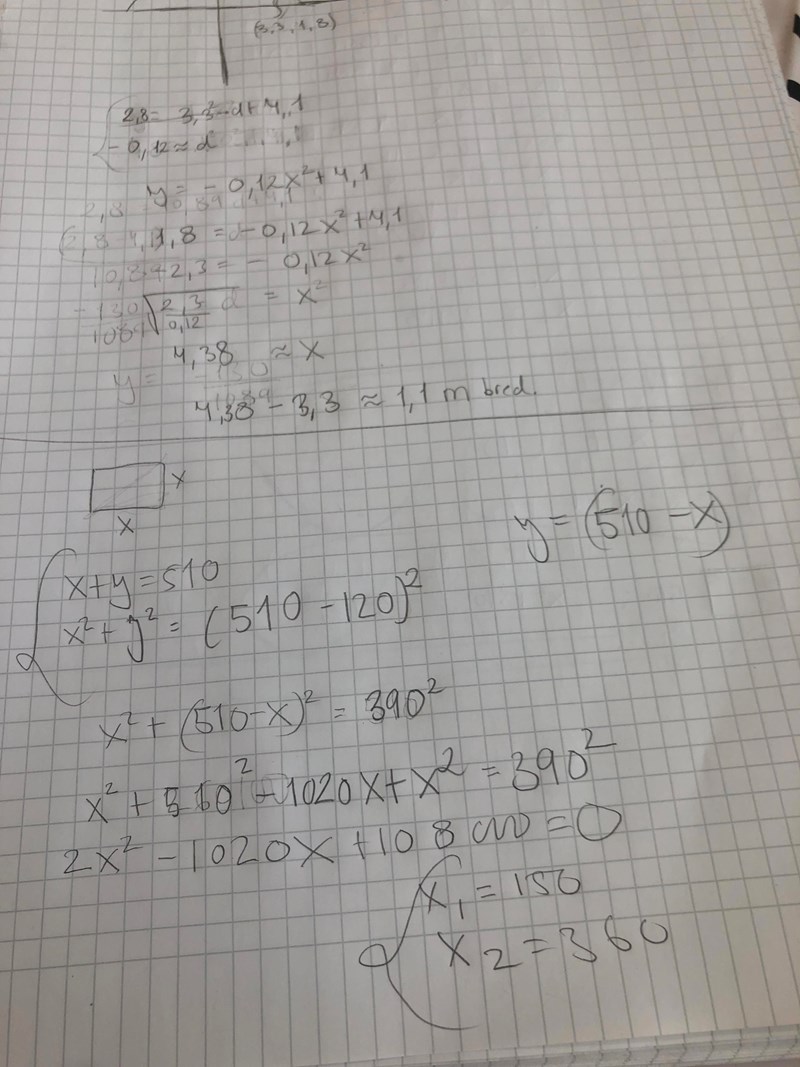 (3,3, 1,8)
2,8 = 3,3² · d + 4,1
-0,12 ≈ d
y = -0,12x² + 4,1
1,8 = -0,12x² + 4,1
-2,3 = -0,12x²
√(2,3/0,12) = x²
4,38 ≈ x
4,38 - 3,3 ≈ 1,1 m bred.
x
x
y = (510 - x)
x + y = 510
x² + y² = (510 - 120)²
x² + (510 - x)² = 390²
x² + 510² - 1020x + x² = 390²
2x² - 1020x + 108 000 = 0
x₁ = 150
x₂ = 360